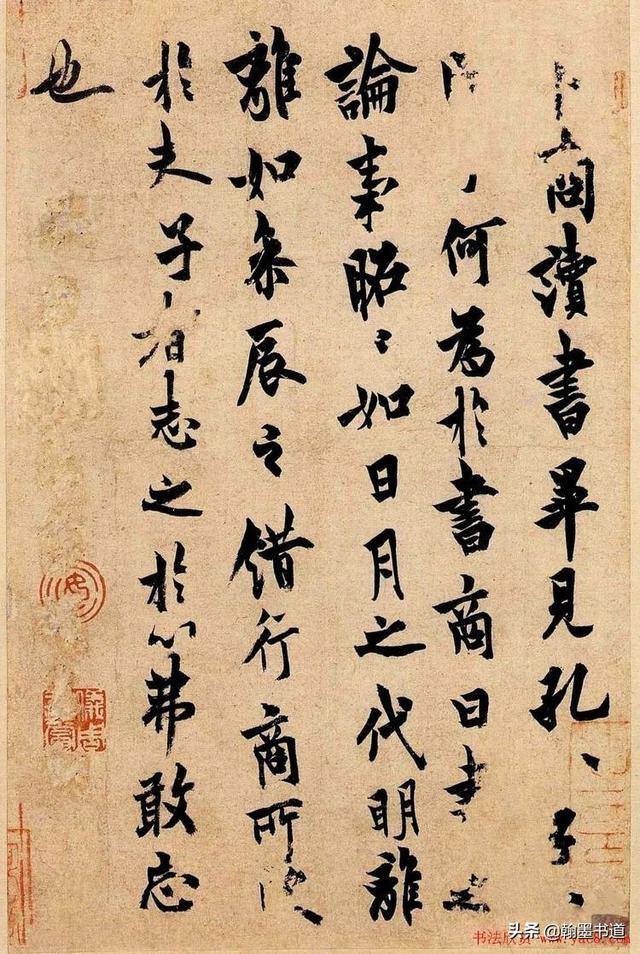 卜商讀書畢見孔、子、
何為於書商曰書之
論事昭〻如日月之代明離
離如參辰之錯行商所受
於夫子者志之於心弗敢忘
也
头条 @翰墨书道
书法欣赏 www.yac8.com